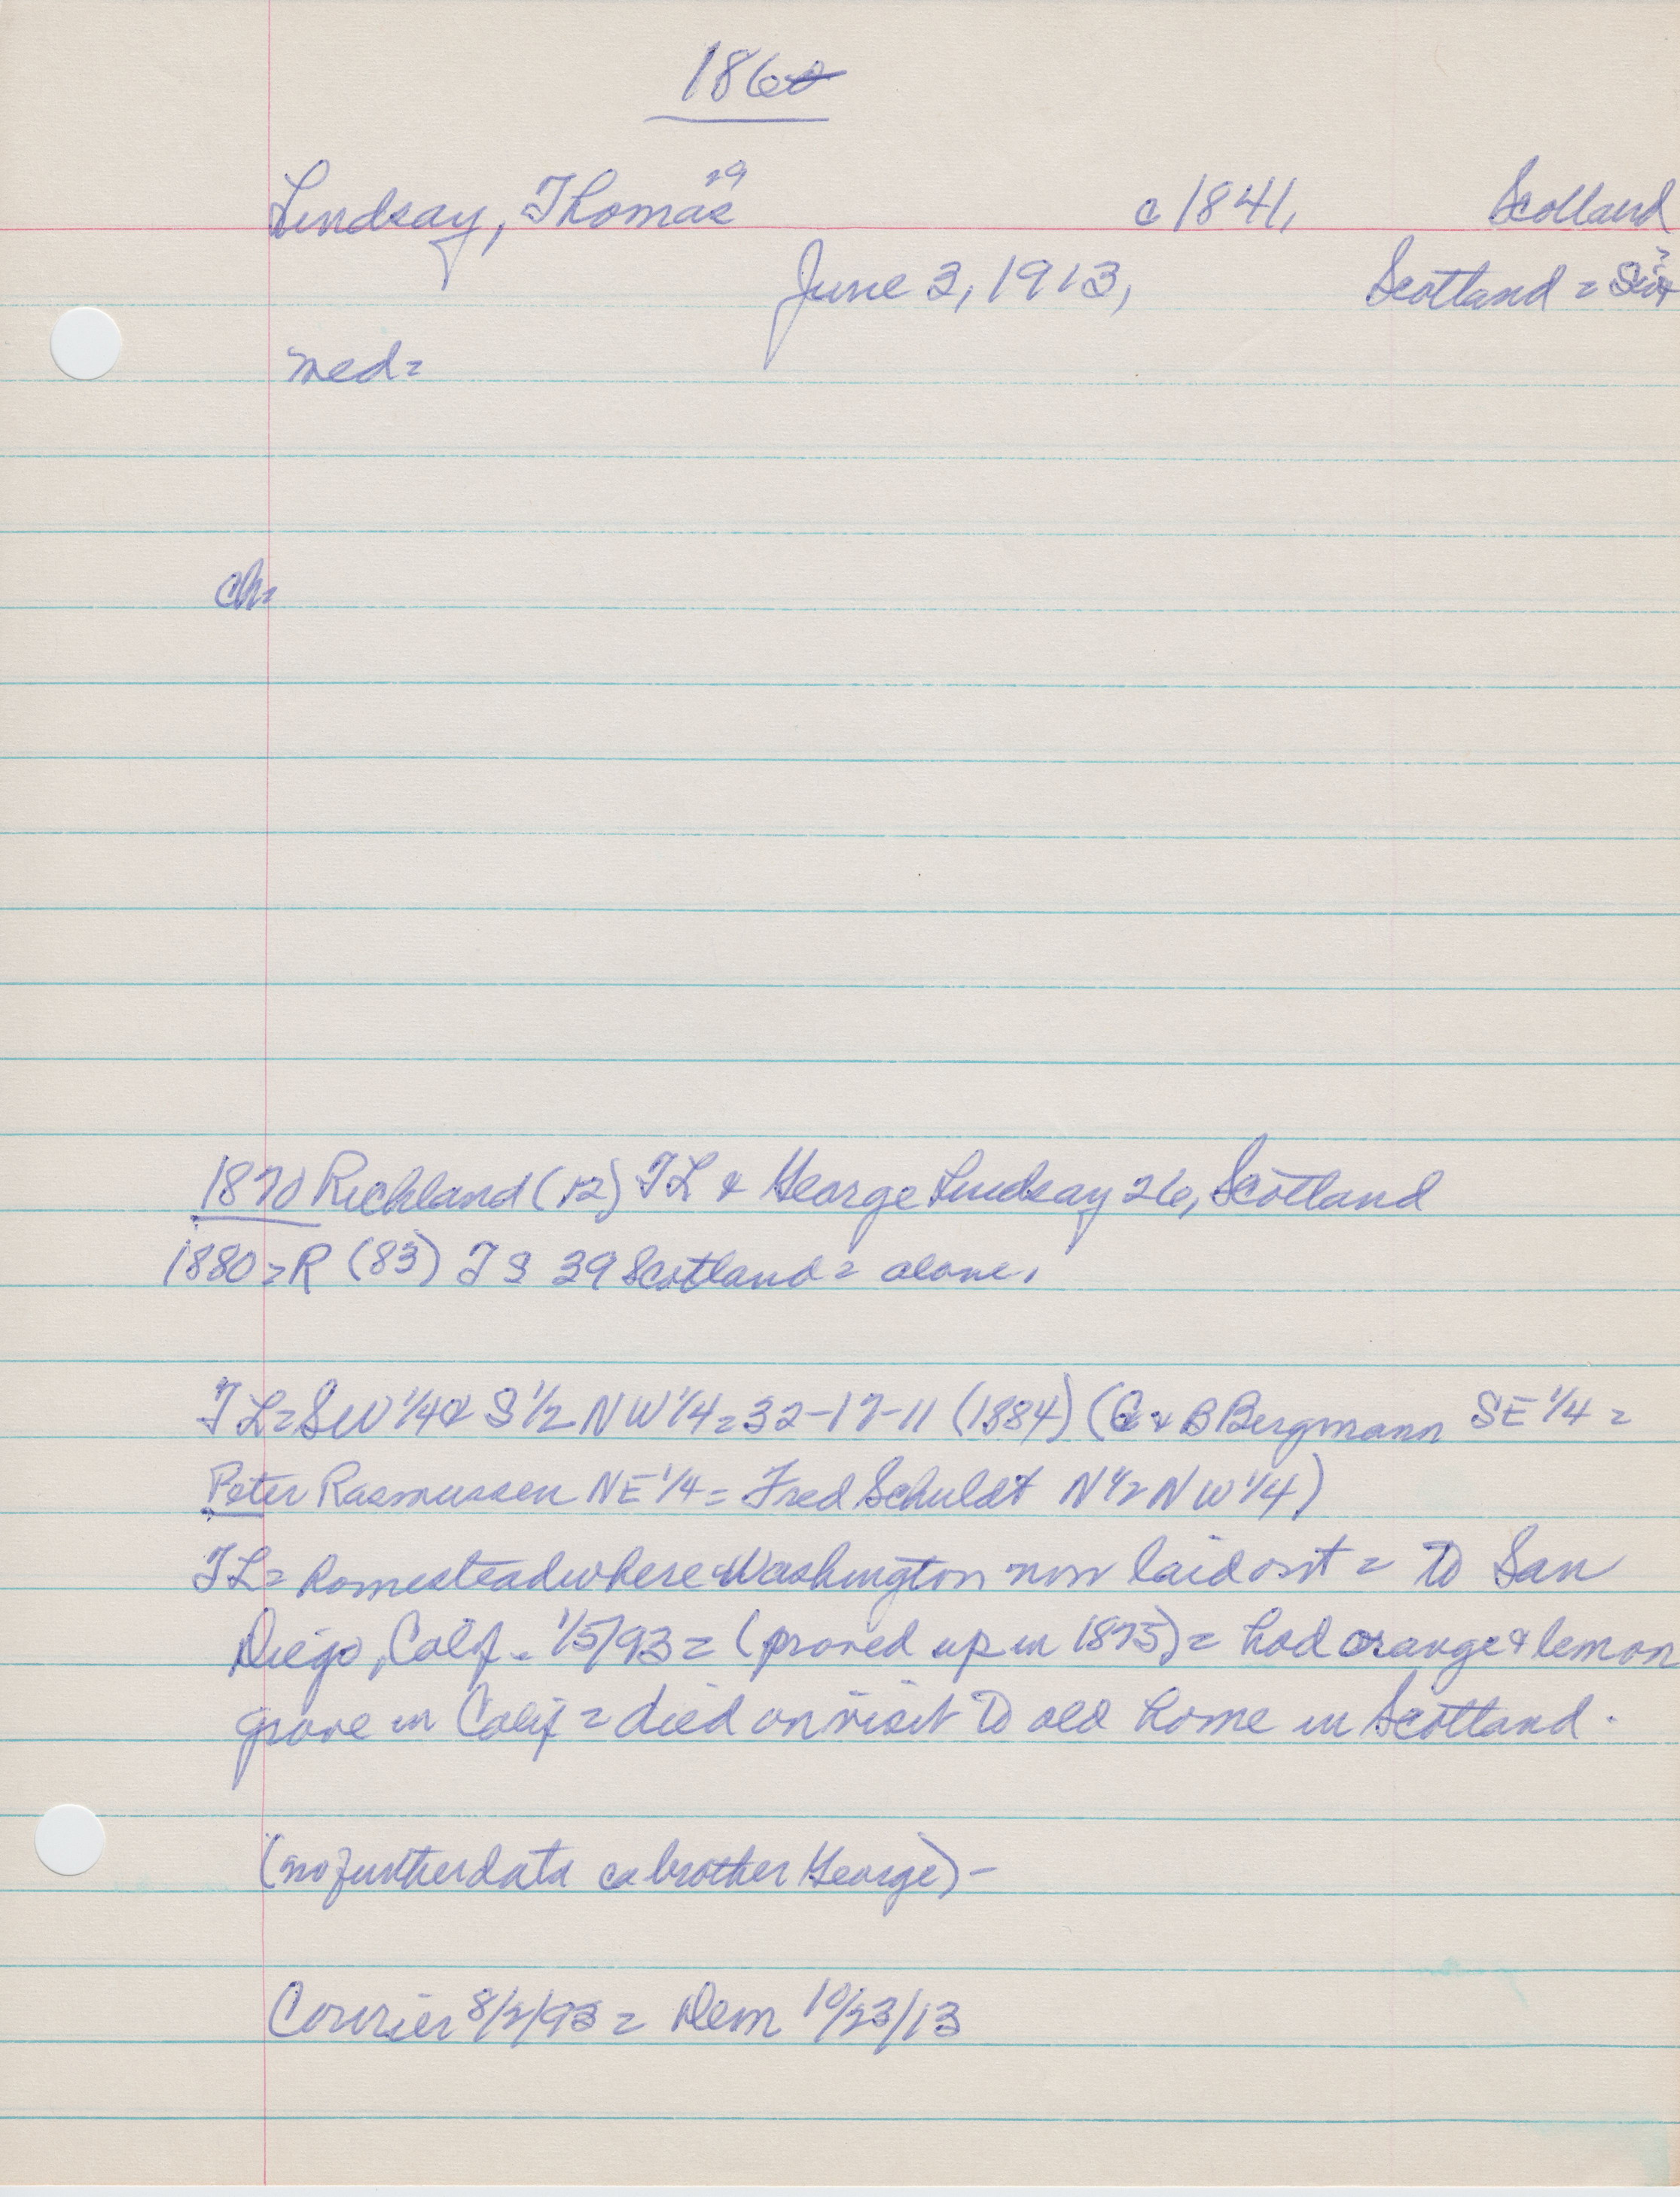 1860
Lindsay, Thomas 29 c 1841, Scotland
June 3, 1913, Scotland =
med=
ch=
1870 Richland (12) TL & George Lindsay 26, Scotland
1880=R (83) T S 39 Scotland = alone.
TL=SW 1/4 & S 1/2 NW 1/4=32-17-11 (1884) (C & B Bergmann SE 1/4 =
Peter Rasmussen NE 1/4 = Fred Schuldt N 1/2 NW 1/4)
TL= homestead where Washington now laid out = to San
Diego, Calif. 1/5/93 = (proved up in 1875) = had orange & lemon
grove in Calif = died on visit to old home in Scotland.
(no further data ca brother George) -
Courier 8/2/93 = Dem 10/23/13